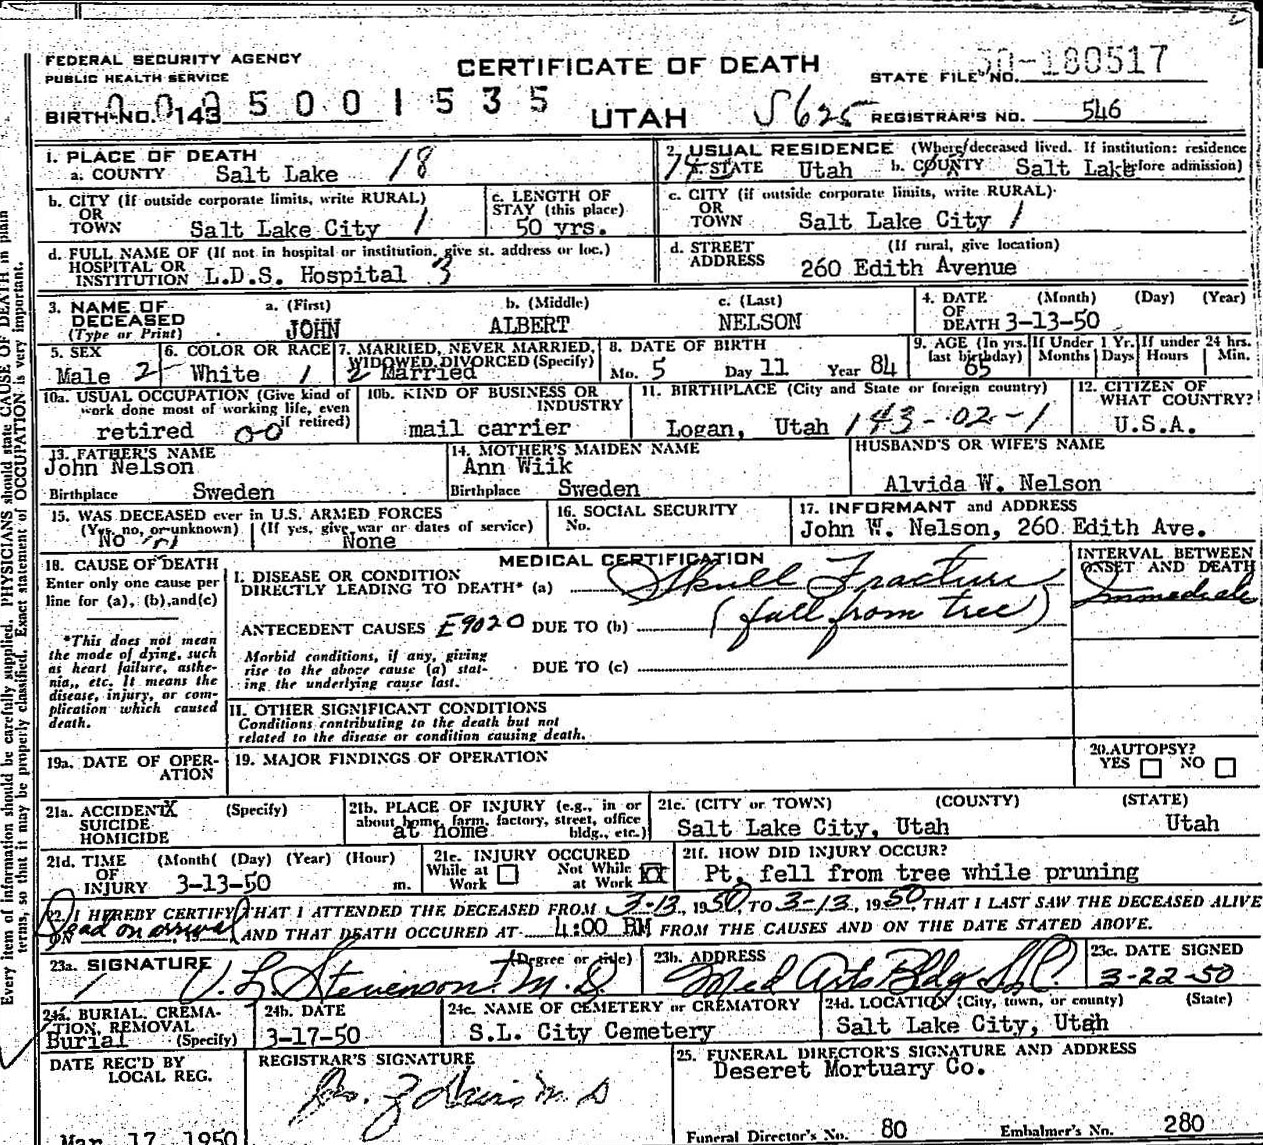 FEDERAL SECURITY AGENCY
PUBLIC HEALTH SERVICE
CERTIFICATE OF DEATH
STATE FILE NO. 50-180517
BIRTH NO. 143
0 0 0 5 0 0 1 5 3 5
UTAH
S625
REGISTRAR'S NO. 546
1. PLACE OF DEATH
a. COUNTY Salt Lake 18
2. USUAL RESIDENCE (Where deceased lived. If institution: residence before admission)
a. STATE Utah b. COUNTY Salt Lake
b. CITY (If outside corporate limits, write RURAL)
OR
TOWN Salt Lake City 1
c. LENGTH OF
STAY (this place)
50 yrs.
c. CITY (if outside corporate limits, write RURAL)
OR
TOWN Salt Lake City 1
d. FULL NAME OF (If not in hospital or institution, give st. address or loc.)
HOSPITAL OR
INSTITUTION L.D.S. Hospital 3
d. STREET (If rural, give location)
ADDRESS 260 Edith Avenue
3. NAME OF
DECEASED
(Type or Print)
a. (First) b. (Middle) c. (Last)
JOHN ALBERT NELSON
4. DATE (Month) (Day) (Year)
OF
DEATH 3-13-50
5. SEX
Male 2
6. COLOR OR RACE
White 1
7. MARRIED, NEVER MARRIED,
WIDOWED, DIVORCED (Specify)
2 Married
8. DATE OF BIRTH
Mo. 5 Day 11 Year 84
9. AGE (In yrs. last birthday)
65
If Under 1 Yr.
Months Days
If under 24 hrs.
Hours Min.
10a. USUAL OCCUPATION (Give kind of
work done most of working life, even
if retired)
retired 00
10b. KIND OF BUSINESS OR
INDUSTRY
mail carrier
11. BIRTHPLACE (City and State or foreign country)
Logan, Utah 143-02-1
12. CITIZEN OF
WHAT COUNTRY?
U.S.A.
13. FATHER'S NAME
John Nelson
Birthplace Sweden
14. MOTHER'S MAIDEN NAME
Ann Wiik
Birthplace Sweden
HUSBAND'S OR WIFE'S NAME
Alvida W. Nelson
15. WAS DECEASED ever in U.S. ARMED FORCES
(Yes, no, or unknown) (If yes, give war or dates of service)
No None
16. SOCIAL SECURITY
No.
17. INFORMANT and ADDRESS
John W. Nelson, 260 Edith Ave.
18. CAUSE OF DEATH
Enter only one cause per
line for (a), (b), and (c)
*This does not mean
the mode of dying, such
as heart failure, asthe-
nia, etc. It means the
disease, injury, or com-
plication which caused
death.
MEDICAL CERTIFICATION
I. DISEASE OR CONDITION
DIRECTLY LEADING TO DEATH* (a) Skull Fracture
ANTECEDENT CAUSES E9020 DUE TO (b) (fall from tree)
Morbid conditions, if any, giving
rise to the above cause (a) stat-
ing the underlying cause last.
DUE TO (c)
INTERVAL BETWEEN
ONSET AND DEATH
Immediate
II. OTHER SIGNIFICANT CONDITIONS
Conditions contributing to the death but not
related to the disease or condition causing death.
19a. DATE OF OPER-
ATION
19. MAJOR FINDINGS OF OPERATION
20. AUTOPSY?
YES NO
21a. ACCIDENT X (Specify)
SUICIDE
HOMICIDE
21b. PLACE OF INJURY (e.g., in or
about home, farm, factory, street, office
bldg., etc.)
at home
21c. (CITY or TOWN) (COUNTY) (STATE)
Salt Lake City, Utah Utah
21d. TIME (Month( (Day) (Year) (Hour)
OF
INJURY 3-13-50 m.
21e. INJURY OCCURED
While at Work Not While at Work X
21f. HOW DID INJURY OCCUR?
Pt. fell from tree while pruning
22. I HEREBY CERTIFY THAT I ATTENDED THE DECEASED FROM 3-13, 1950, TO 3-13, 1950, THAT I LAST SAW THE DECEASED ALIVE
ON Dead on arrival, 19 AND THAT DEATH OCCURED AT 4:00 PM FROM THE CAUSES AND ON THE DATE STATED ABOVE.
23a. SIGNATURE (Degree or title)
V. L. Stevenson M.D.
23b. ADDRESS
Med Arts Bldg SLC.
23c. DATE SIGNED
3-22-50
24a. BURIAL, CREMA-
TION, REMOVAL
(Specify)
Burial
24b. DATE
3-17-50
24c. NAME OF CEMETERY or CREMATORY
S.L. City Cemetery
24d. LOCATION (City, town, or county) (State)
Salt Lake City, Utah
DATE REC'D BY
LOCAL REG.
Mar 17 1950
REGISTRAR'S SIGNATURE
25. FUNERAL DIRECTOR'S SIGNATURE AND ADDRESS
Deseret Mortuary Co.
Funeral Director's No. 80 Embalmer's No. 280
Every item of information should be carefully supplied. PHYSICIANS should state CAUSE OF DEATH in plain
terms, so that it may be properly classified. Exact statement of OCCUPATION is very important.